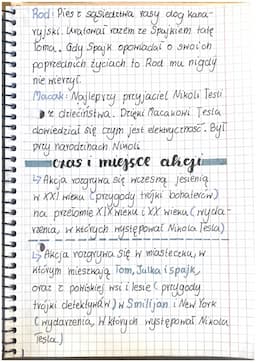 Rod: Pies z sąsiedztwa rasy dog kana-
ryjski. Uratował razem ze Spajkiem tatę
Toma. Gdy Spajk opowiadał o swoich
poprzednich życiach to Rod mu nigdy
nie wierzył.
Macak: Najlepszy przyjaciel Nikoli Tesli
z dzieciństwa. Dzięki Macakowi Tesla
dowiedział się czym jest elektryczność. Był
przy narodzinach Nikoli
czas i miejsce akcji
↳ Akcja rozgrywa się wczesną jesienią
w XXI wieku (przygody trójki bohaterów)
na przełomie XIX wieku i XX wieku (wyda-
rzenia, w których występował Nikola Tesla)
↳ Akcja rozgrywa się w miasteczku, w
którym mieszkają Tom, Julka i spajk,
oraz z pobliskiej wsi i lesie (przygody
trójki detektywów) w Smiljan i New York
(wydarzenia, w których występował Nikola
Tesla)